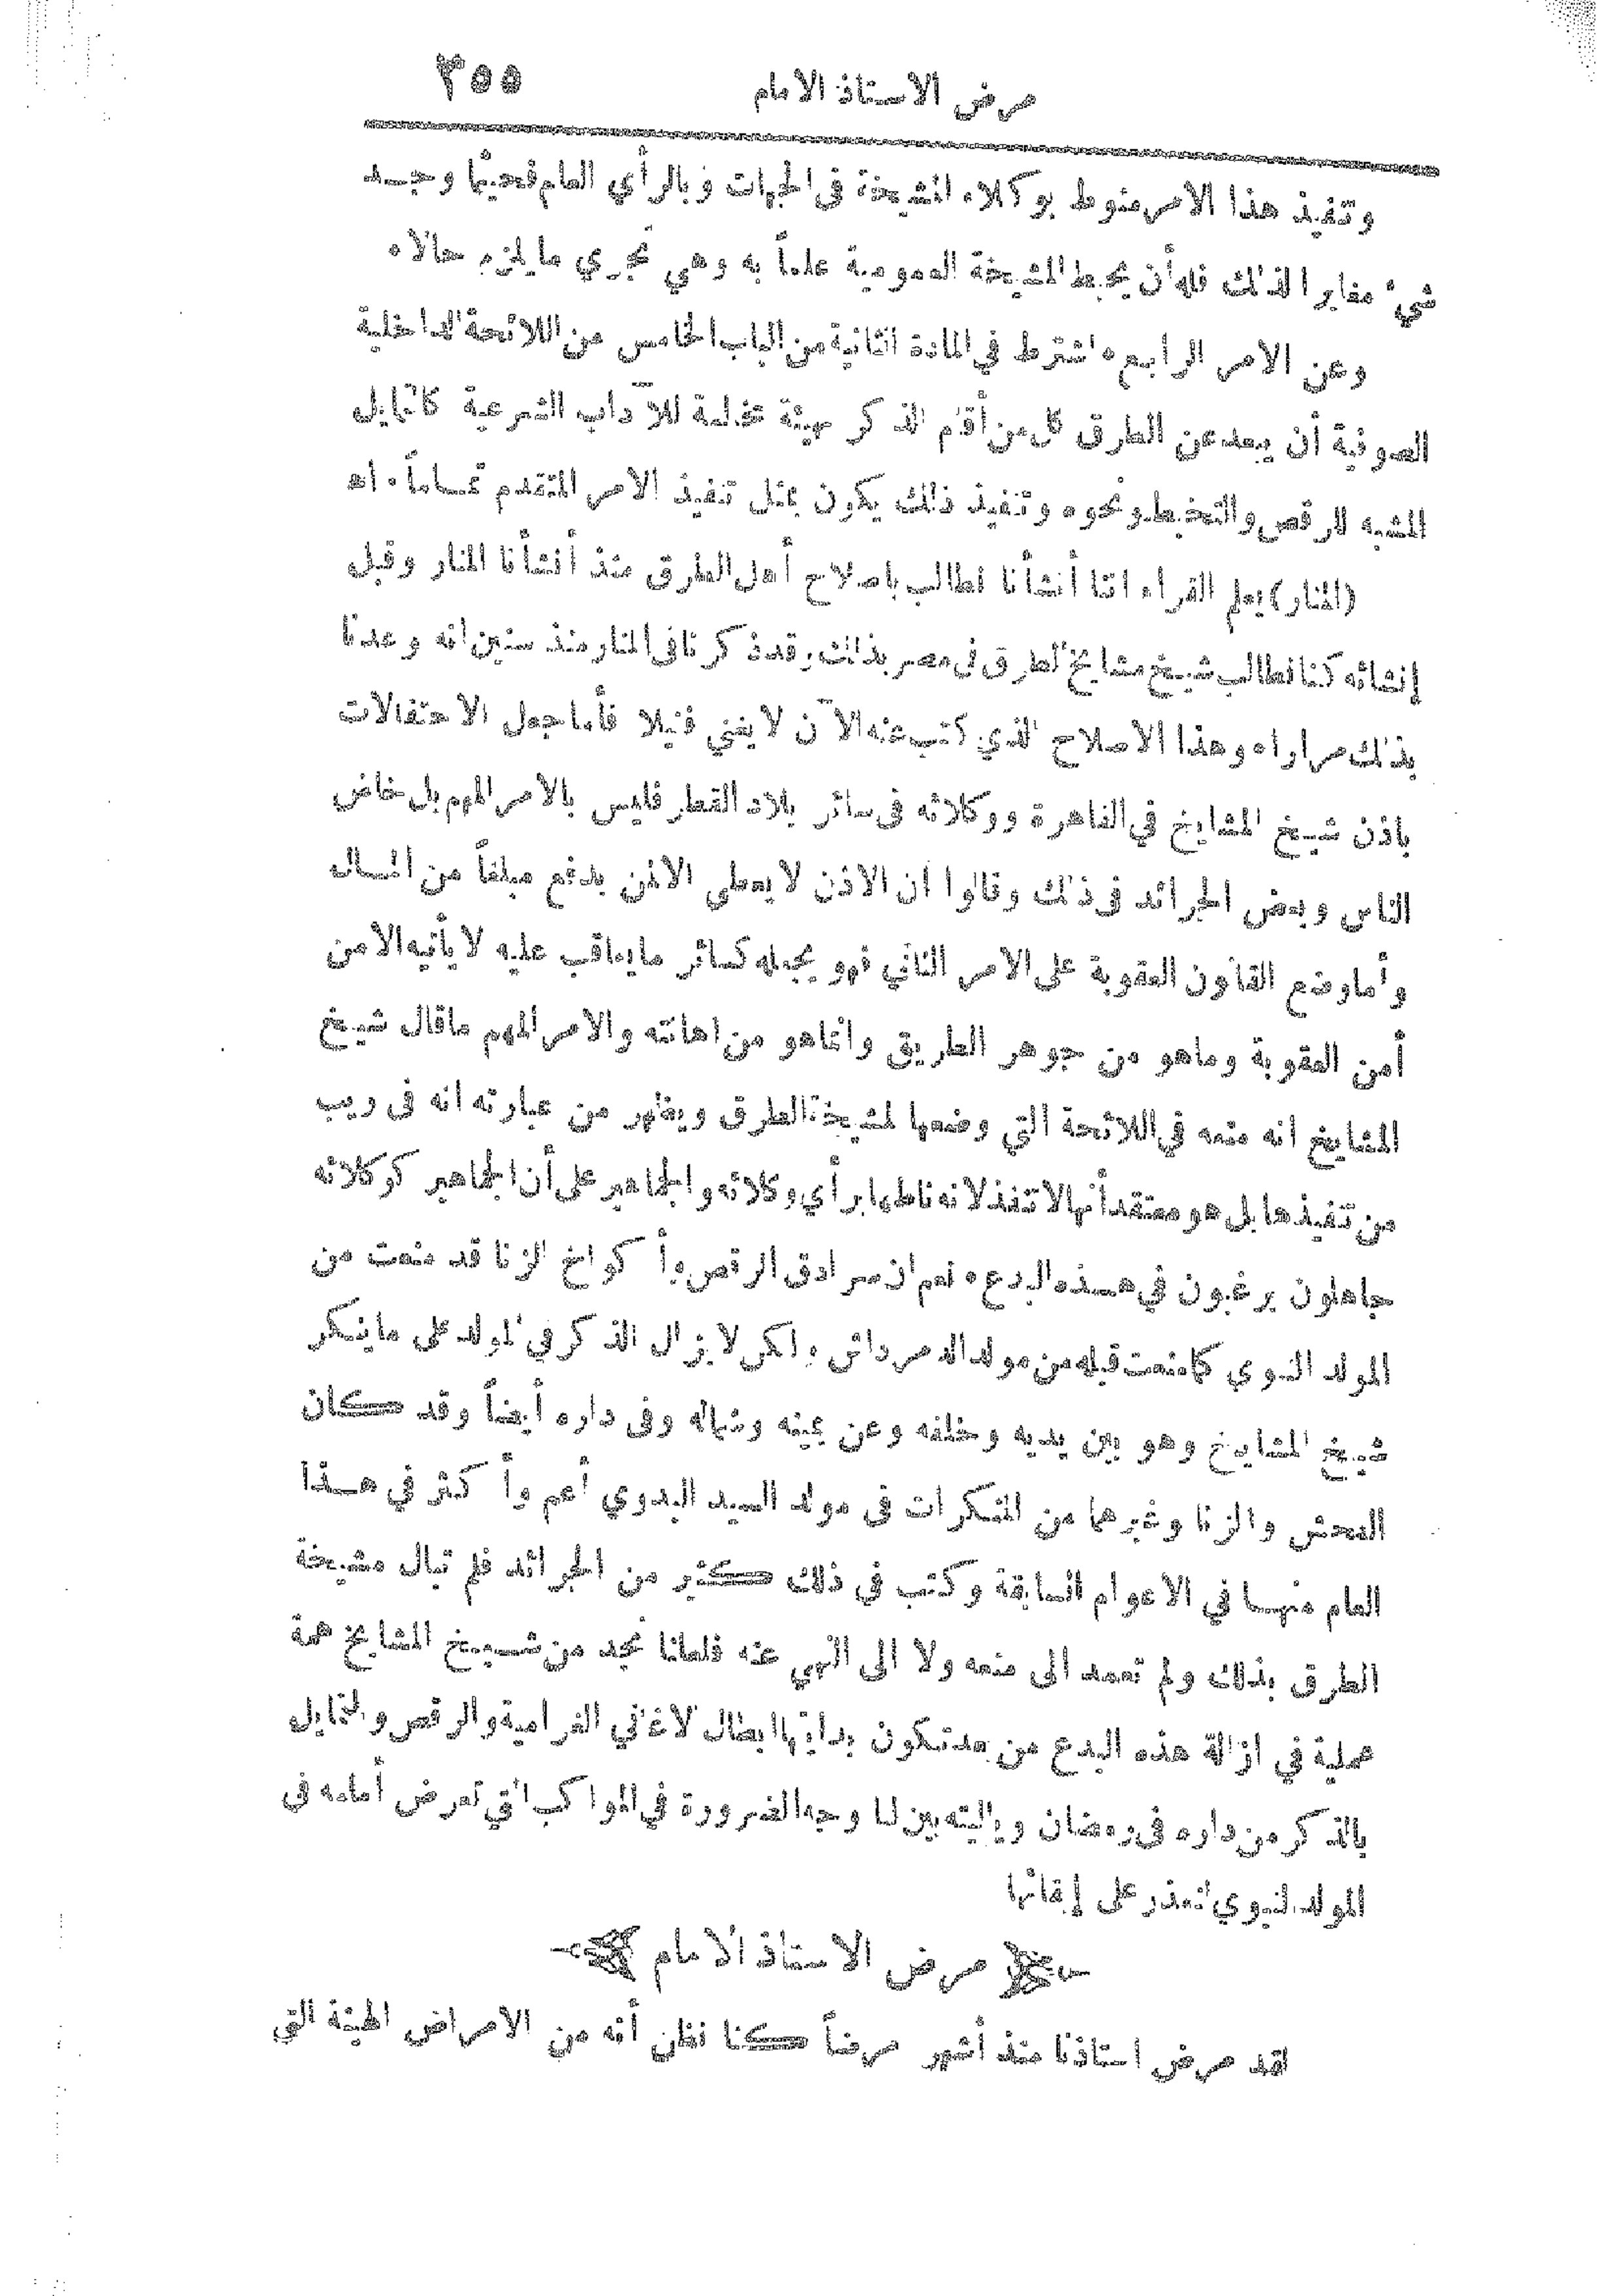 مرض الاستاذ الامام ٣٥٥
وتنفيذ هذا الامر منوط بوكلاء المشيخة في الجهات وبالرأي العام فحيثما وجد
شيء مغايرا لذلك فله أن يحيط المشيخة العمومية علماً به وهي تجري مايلزم حالاه
وعن الامر الرابع ه اشترط في المادة الثانية من الباب الخامس من اللائحة الداخلية
الصوفية أن يبعد عن الطرق كل من أقام الذكر بهيئة مخالفة للآداب الشرعية كالتمايل
المشبه للرقص والتخبط ونحوه وتنفيذ ذلك يكون بمثل تنفيذ الامر المتقدم تماماً ٠ اه
(المنار) يعلم القراء اننا أنشأنا نطالب باصلاح أهل الطرق منذ أنشأنا المنار وقبل
إنشائه كنا نطالب شيخ مشايخ الطرق في مصر بذلك وقد ذكرنا في المنار منذ سنين انه وعدنا
بذلك مراراه وهذا الاصلاح الذي كتب عنه الآن لا يغني فتيلا فأما جعل الاحتفالات
باذن شيخ المشايخ في القاهرة ووكلائه في سائر بلاد القطر فليس بالامر المهم بل خاض
الناس وبعض الجرائد في ذلك وقالوا ان الاذن لا يعطى الا لمن يدفع مبلغاً من المال
وأما وضع القانون العقوبة على الامر الثاني فهو يجعله كسائر مايعاقب عليه لا يأتيه الا من
أمن العقوبة وماهو من جوهر الطريق وانماهو من اهانته والامر المهم ماقال شيخ
المشايخ انه منعه في اللائحة التي وضعها لمشيخة الطرق ويظهر من عبارته انه في ريب
من تنفيذها بل هو معتقد أنها لا تنفذ لانه ناطها برأي وكلائه والجماهير على أن الجماهير كوكلائه
جاهلون يرغبون في هذه البدع ه نعم ان سرادق الرقص وأكواخ الزنا قد منعت من
المولد النبوي كما منعت قبله من مولد الدمرداش ولكن لا يزال الذكر في المولد على ماينكر
شيخ المشايخ وهو بين يديه وخلفه وعن يمينه وشماله وفي داره أيضاً وقد كان
الفحش والزنا وغيرهما من المنكرات في مولد السيد البدوي أعم وأكثر في هذا
العام منها في الاعوام السابقة وكتب في ذلك كثير من الجرائد فلم تبال مشيخة
الطرق بذلك ولم تعمد الى منعه ولا الى النهي عنه فلعلنا نجد من شيخ المشايخ همة
عملية في ازالة هذه البدع من بعد تكون بدايتها ابطال الاغاني الغرامية والرقص والتمايل
بالذكر من داره في رمضان وياليته يبين لنا وجه الضرورة في المواكب التي تعرض أمامه في
المولد النبوي لنعذر على إبقائها
مرض الاستاذ الامام
لقد مرض استاذنا منذ أشهر مرضاً كنا نظن أنه من الامراض الهينة التي